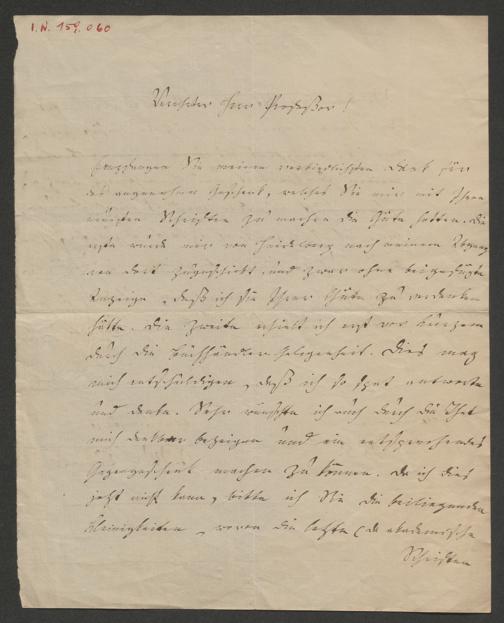 I.N. 159.060
Verehrter Herr Professor!
Empfangen Sie meinen verbindlichsten Dank für
das angenehme Geschenk, welches Sie mir mit Ihren
neuesten Schriften zu machen die Güte hatten. Die
erste wurde mir von Heidelberg nach meinem Abgang
von dort zugeschickt, und zwar ohne beigefügte
Anzeige, daß ich sie Ihrer Güte zu verdanken
hätte. Die zweite erhielt ich erst vor kurzem
durch die Buchhändler-Gelegenheit. Dies mag
mich entschuldigen, daß ich so spät antworte
und danke. Sehr wünschte ich auch durch die That
mich dankbar bezeigen und ein entsprechendes
Gegengeschenk machen zu können. Da ich dies
jetzt nicht kann, bitte ich Sie die beiliegenden
Kleinigkeiten, wovon die letzte (da akademische
Schriften